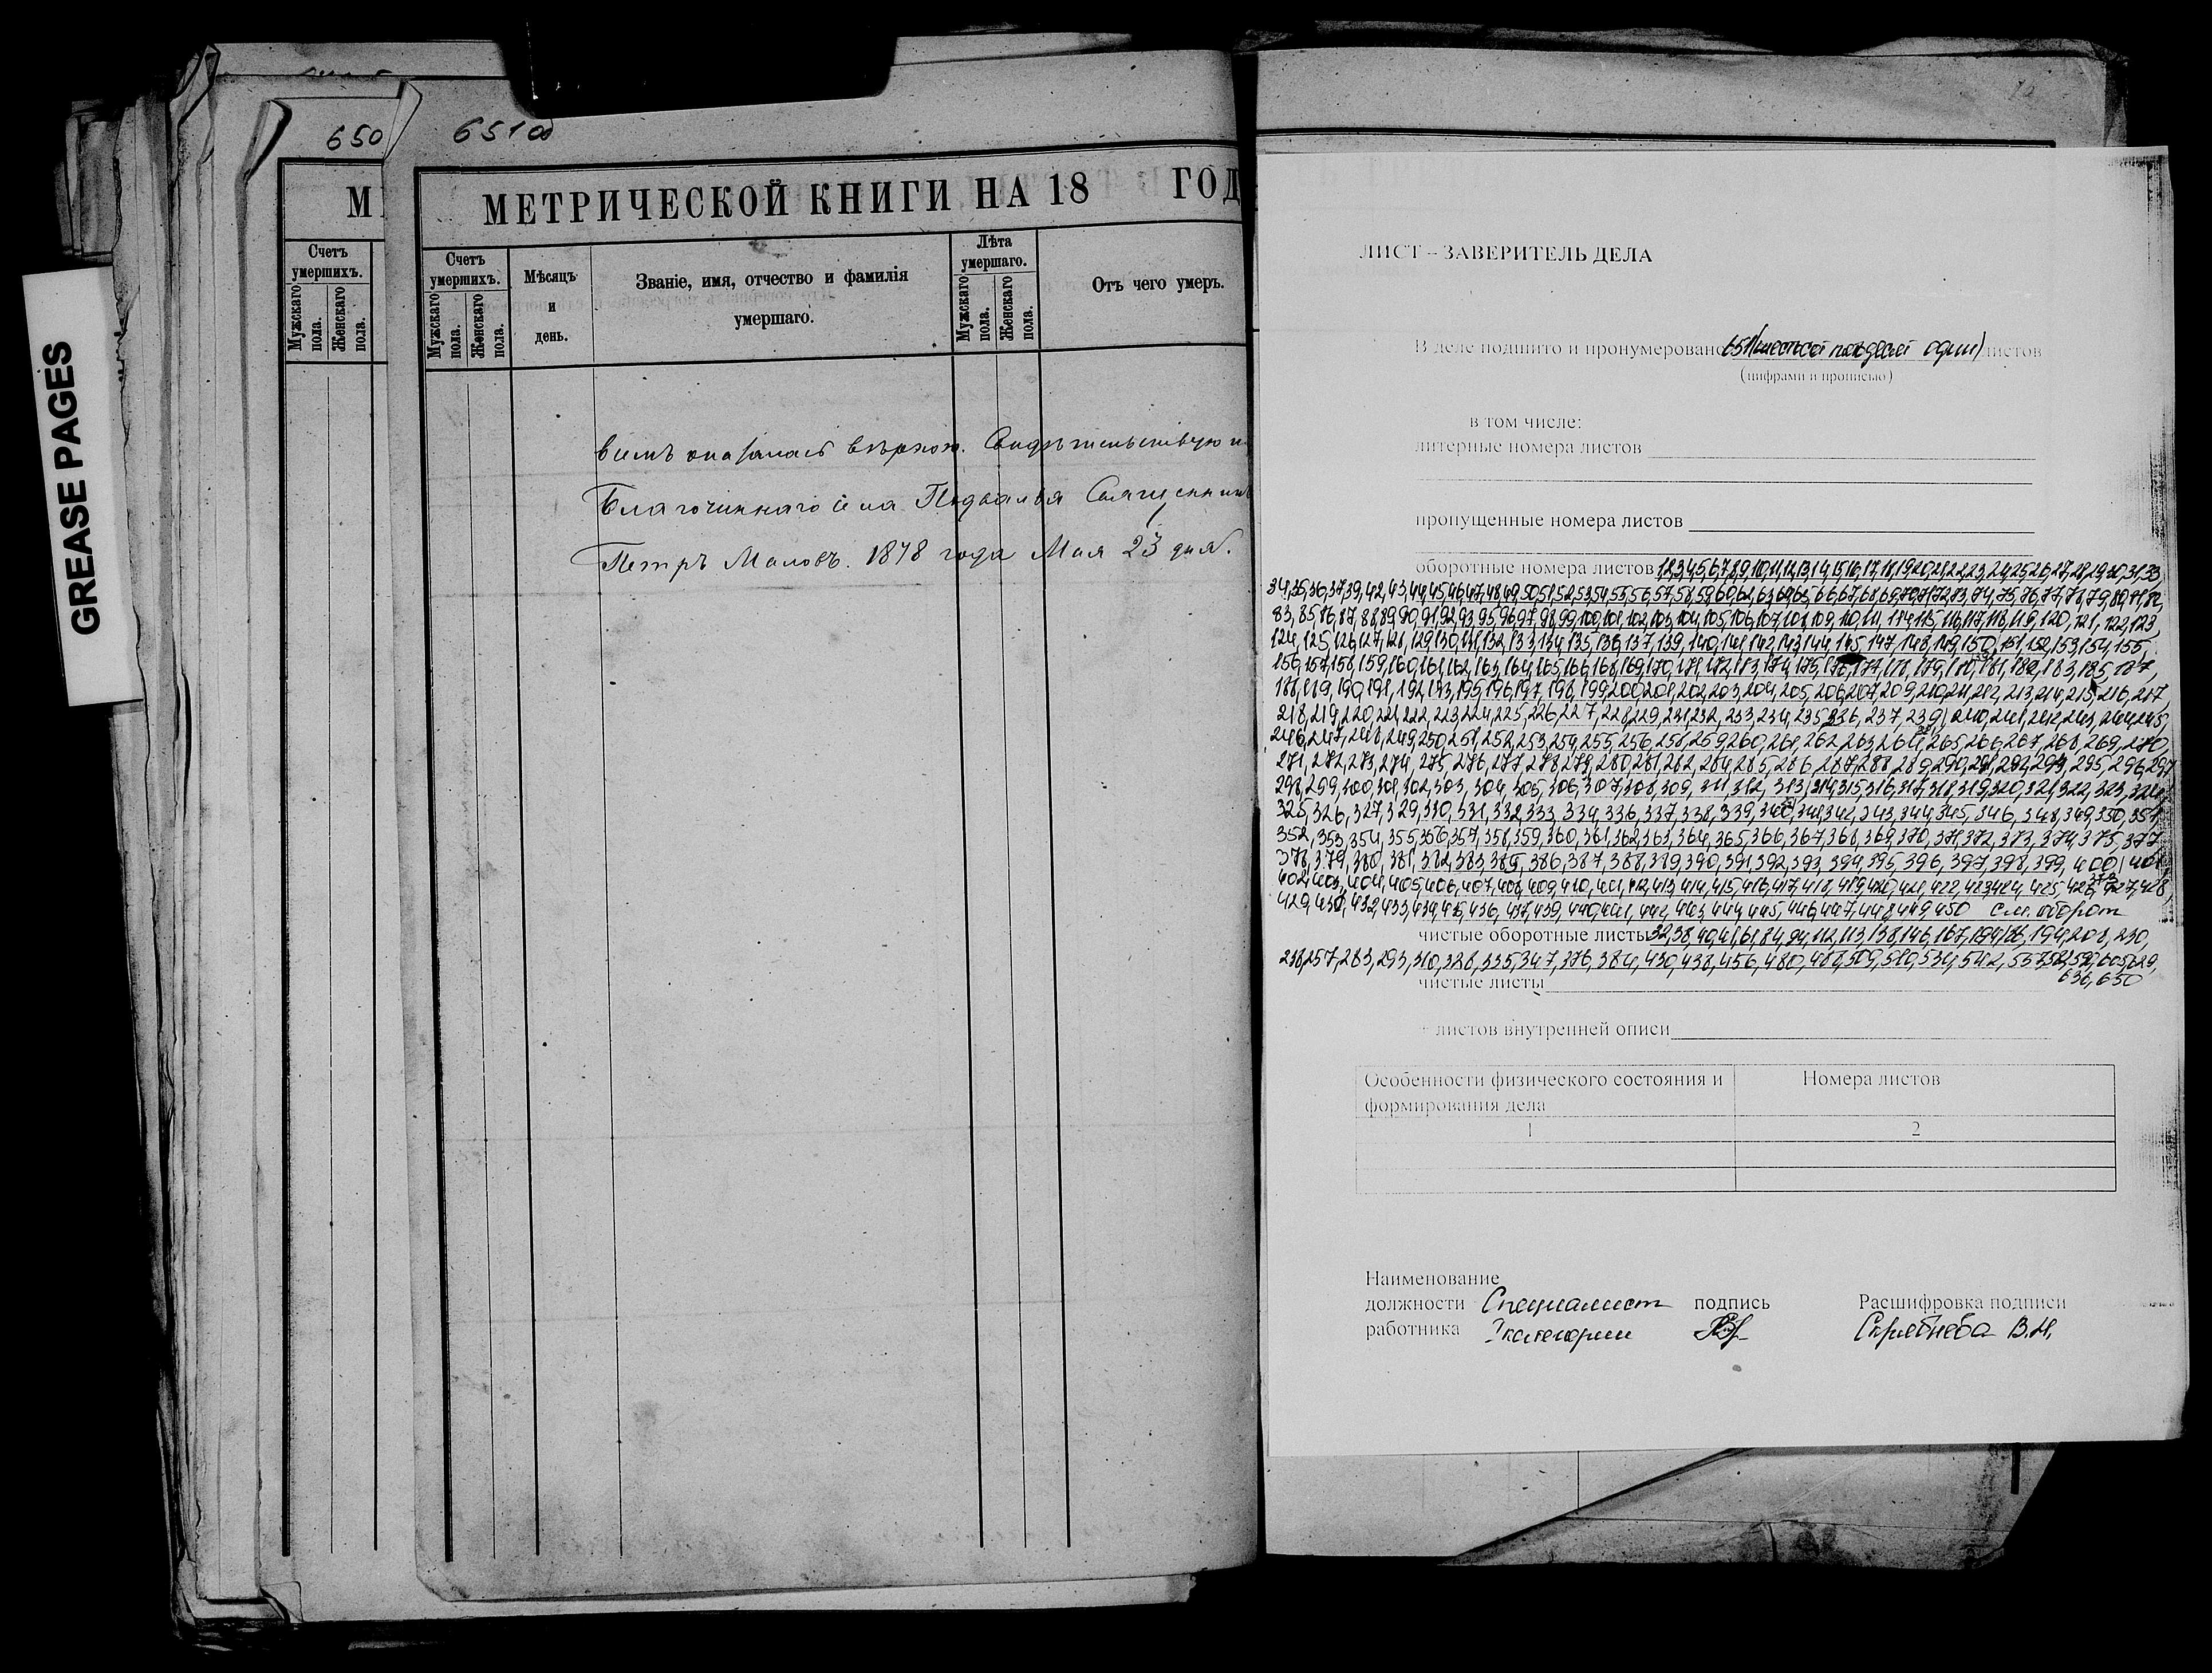 GREASE PAGES
650
М
Счетъ
умершихъ.
Мужскаго
пола.
Женскаго
пола.
651об
МЕТРИЧЕСКОЙ КНИГИ НА 18 ГОД
Счетъ
умершихъ.
Мужскаго
пола.
Женскаго
пола.
Мѣсяцъ
и
день.
Званіе, имя, отчество и фамилія
умершаго.
Лѣта
умершаго.
Мужскаго
пола.
Женскаго
пола.
Отъ чего умеръ.
оказалась вѣрною.
Благочиннаго села Подвалья Священник
Петръ Маловъ. 1878 года Мая 23 дня.
ЛИСТ – ЗАВЕРИТЕЛЬ ДЕЛА
В деле подшито и пронумеровано 651 (шестьсот пятьдесят один) листов
(цифрами и прописью)
в том числе:
литерные номера листов
пропущенные номера листов
оборотные номера листов 1,2,3,4,5,6,7,8,9,10,11,12,13,14,15,16,17,18,19,20,21,22,23,24,25,26,27,28,29,30,31,33,
34,35,36,37,39,42,43,44,45,46,47,48,49,50,51,52,53,54,55,56,57,58,59,60,62,63,64,65,66,67,68,69,70,71,72,73,74,75,76,77,78,79,80,81,82,
83,85,86,87,88,89,90,91,92,93,95,96,97,98,99,100,101,102,103,104,105,106,107,108,109,110,111,114,115,116,117,118,119,120,121,122,123,
124,125,126,127,128,129,130,131,132,133,134,135,136,137,139,140,141,142,143,144,145,147,148,149,150,151,152,153,154,155,
156,157,158,159,160,161,162,163,164,165,166,168,169,170,171,172,173,174,175,176,177,178,179,180,181,182,183,185,187,
188,189,190,191,192,193,195,196,197,198,199,200,201,202,203,204,205,206,207,209,210,211,212,213,214,215,216,217,
218,219,220,221,222,223,224,225,226,227,228,229,231,232,233,234,235,236,237,239,240,241,242,243,244,245,
246,247,248,249,250,251,252,253,254,255,256,258,259,260,261,262,263,264,265,266,267,268,269,270,
271,272,273,274,275,276,277,278,279,280,281,282,284,285,286,287,288,289,290,291,292,294,295,296,297
298,299,300,301,302,303,304,305,306,307,308,309,311,312,313,314,315,316,317,318,319,320,321,322,323,324,
325,326,327,329,330,331,332,333,334,336,337,338,339,340,341,342,343,344,345,346,348,349,350,351,
352,353,354,355,356,357,358,359,360,361,362,363,364,365,366,367,368,369,370,371,372,373,374,375,377
378,379,380,381,382,383,385,386,387,388,389,390,391,392,393,394,395,396,397,398,399,400,401,
402,403,404,405,406,407,408,409,410,411,412,413,414,415,416,417,418,419,420,421,422,423,424,425,426,427,428,
429,430,432,433,434,435,436,437,439,440,441,442,443,444,445,446,447,448,449,450 см. оборот
чистые оборотные листы 32,38,40,41,61,84,94,112,113,138,146,167,184,186,194,208,230,
238,257,283,293,310,328,335,347,376,384,430,438,456,480,488,509,510,534,542,557,582,592,605,629,
636,650
чистые листы
+ листов внутренней описи
Особенности физического состояния и
формирования дела
Номера листов
1
2
Наименование
должности Специалист подпись Расшифровка подписи
работника категории В.Н.